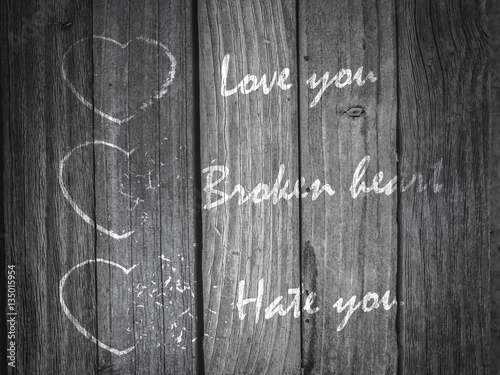 Love you
Broken heart
Hate you
135015954